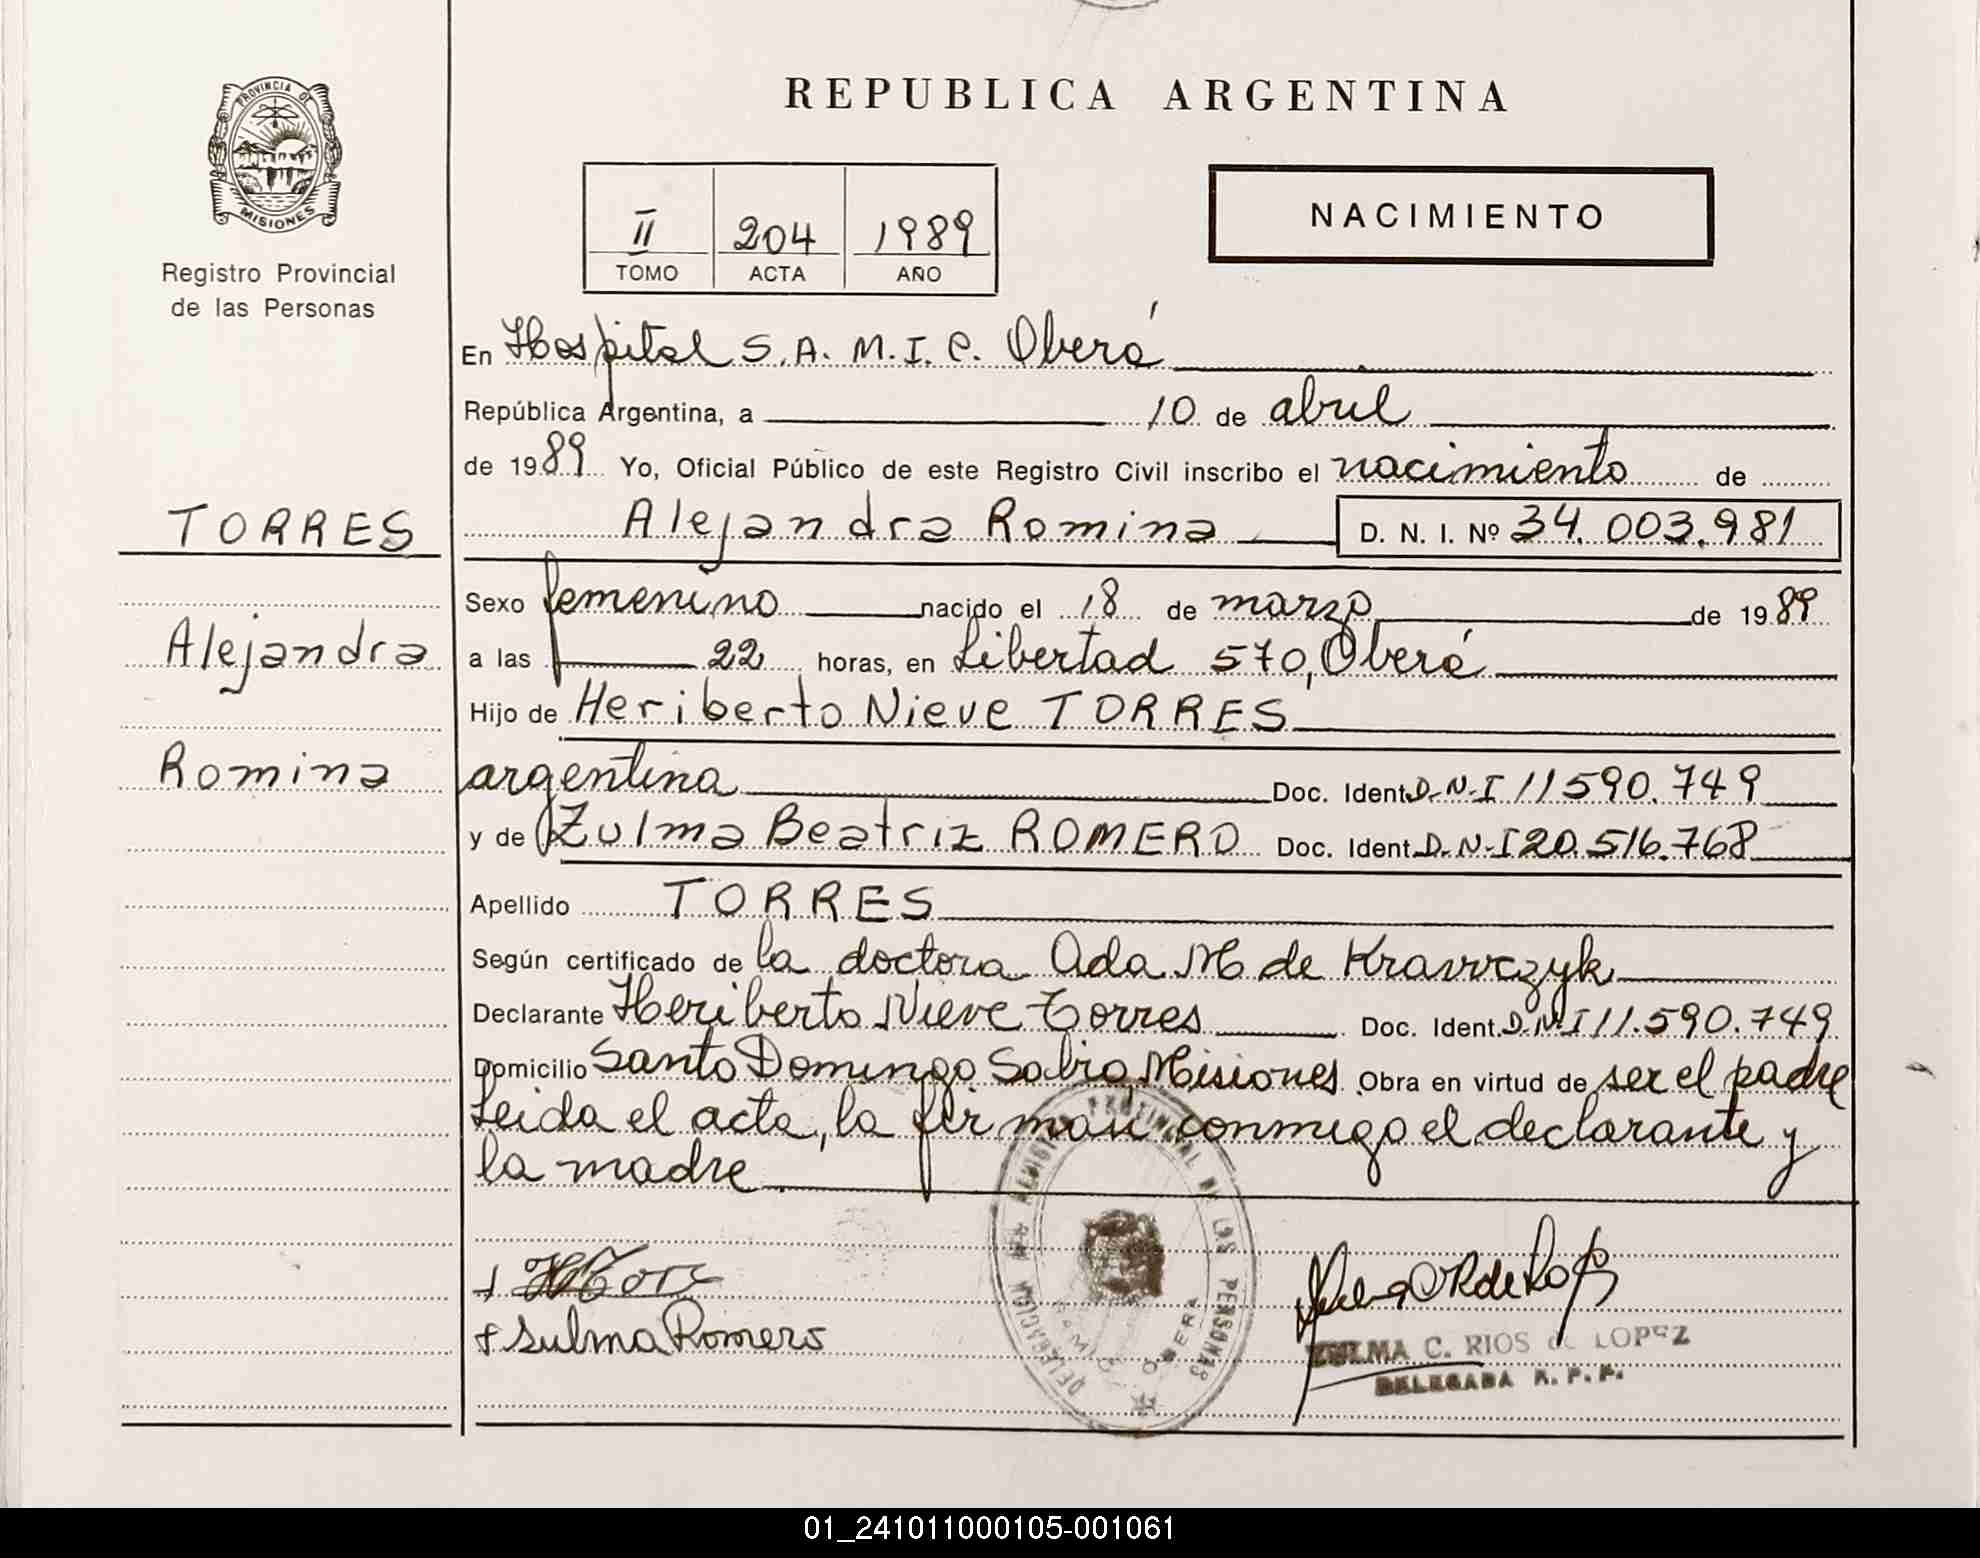 PROVINCIA DE
MISIONES
Registro Provincial
de las Personas
REPUBLICA ARGENTINA
II 204 1989
TOMO ACTA AÑO
NACIMIENTO
En Hospital S.A.M.I.C. Oberá
República Argentina, a 10 de abril
de 1989 Yo, Oficial Público de este Registro Civil inscribo el nacimiento de
TORRES
Alejandra Romina D. N. I. Nº 34.003.981
Sexo femenino nacido el 18 de marzo de 1989
Alejandra
a las 22 horas, en Libertad 570, Oberá
Hijo de Heriberto Nieve TORRES
Romina
argentina Doc. Ident. D.N.I 11590.749
y de Zulma Beatriz ROMERO Doc. Ident. D.N.I 20.516.768
Apellido TORRES
Según certificado de la doctora Ada M de Krawczyk
Declarante Heriberto Nieve Torres Doc. Ident. D.N.I 11.590.749
Domicilio Santo Domingo Sabio Misiones. Obra en virtud de ser el padre
Leida el acta, la firman conmigo el declarante y
la madre
DELEGACION DEL REGISTRO PROVINCIAL DE LAS PERSONAS
OBERA
Sulma Romero
ZULMA C. RIOS de LOPEZ
DELEGADA R. P. P.
01_241011000105-001061